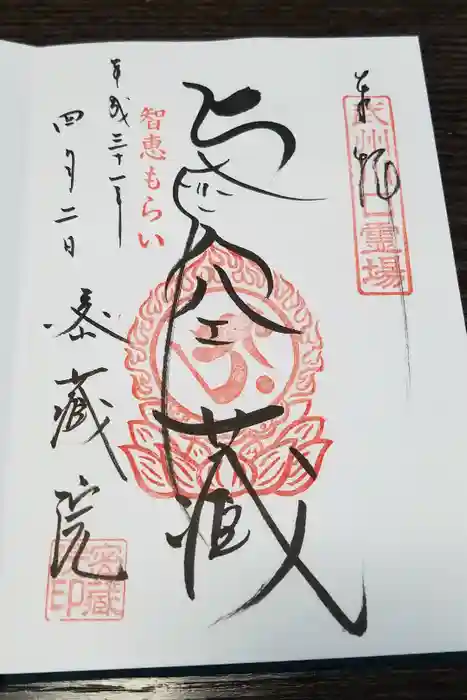 奉拝
武州
霊場
虚空蔵
智恵もらい
平成三十一年
四月二日
密蔵院
密蔵
院印